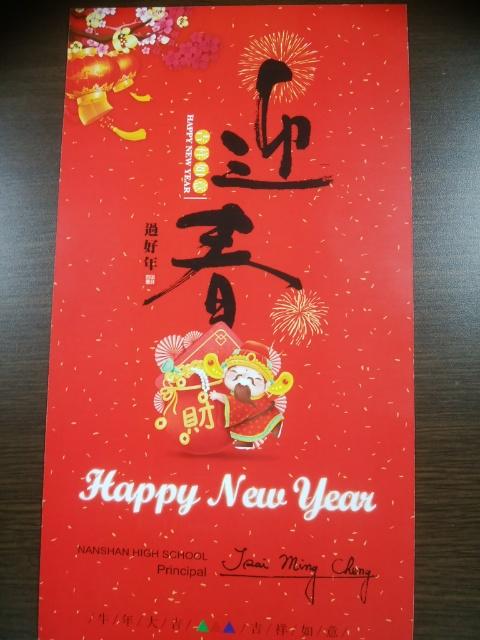 迎春
吉祥如意
HAPPY NEW YEAR
過好年
財
Happy New Year
NANSHAN HIGH SCHOOL
Principal Tsai Ming Cheng
牛年大吉 吉祥如意